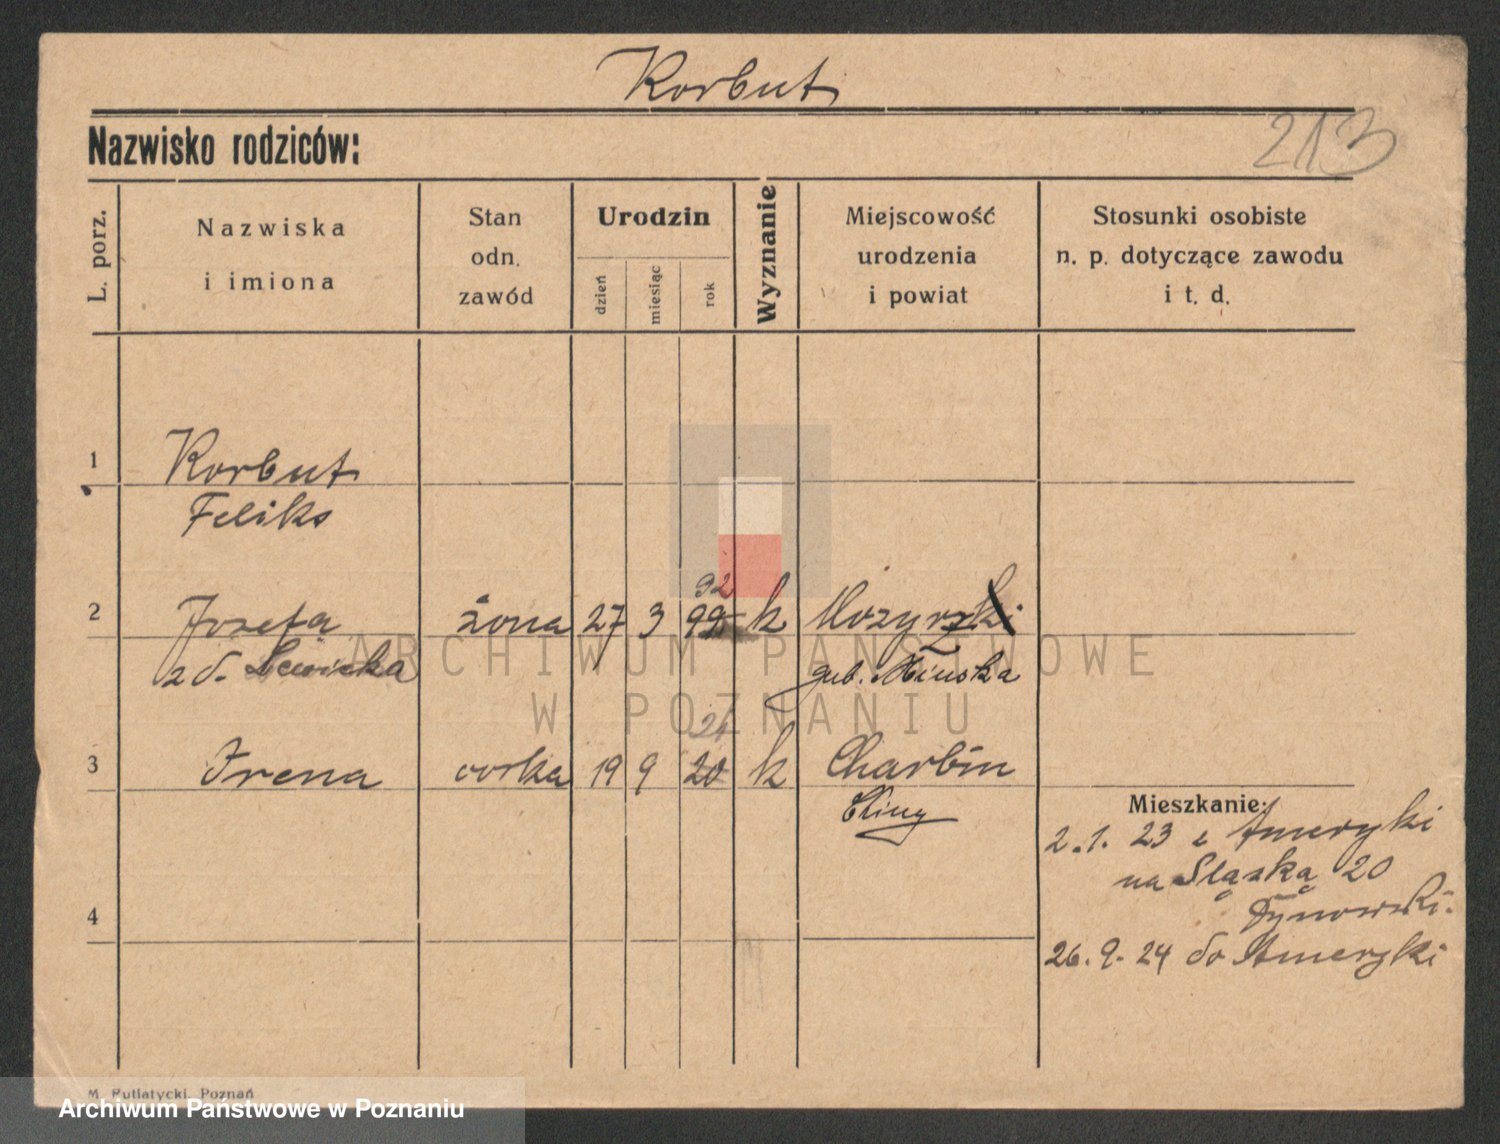 Korbut
Nazwisko rodziców:
213
L. porz.
Nazwiska
i imiona
Stan
odn.
zawód
Urodzin
dzień
miesiąc
rok
Wyznanie
Miejscowość
urodzenia
i powiat
Stosunki osobiste
n. p. dotyczące zawodu
i t. d.
1
Korbut
Feliks
92
2 Józefa żona 27 3 99 k Mozyrz
zd. Lewicka gub. Mińska
21
3 Irena córka 19 9 20 k Charbin
Chiny
Mieszkanie:
2.1.23 z Ameryki
na Śląską 20
4
26.9.24 do Ameryki
M. Putiatycki, Poznań
ARCHIWUM PAŃSTWOWE
W POZNANIU
Archiwum Państwowe w Poznaniu